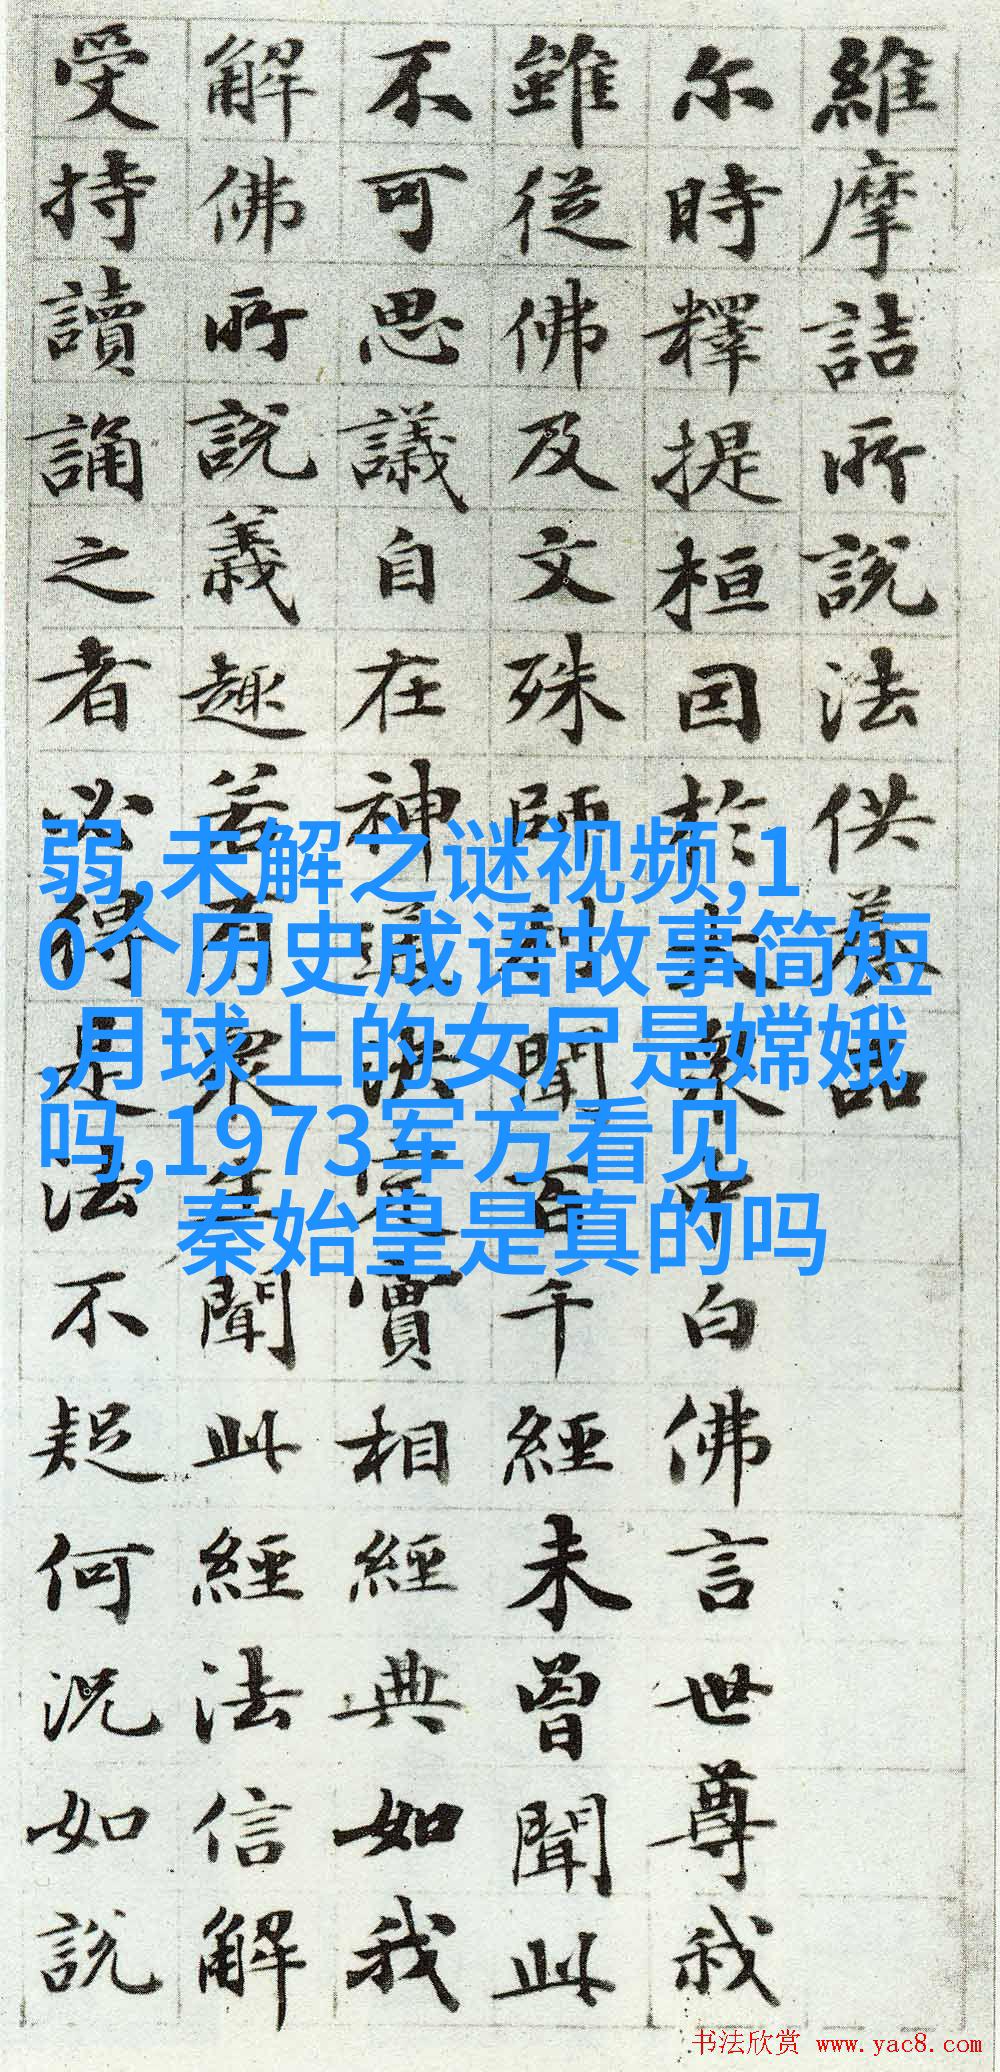 維摩詰所說法供養品
尔時釋提桓因於大眾中白佛言世尊我
雖從佛及文殊師利聞百千經未曾聞此
不可思議自在神通決定實相經典如我
解佛所說義趣若有眾生聞此經法信解
受持讀誦之者必得是法不疑何況如說
弱,未解之谜视频,1
0个历史成语故事简短
,月球上的女尸是嫦娥
吗,1973军方看见
秦始皇是真的吗
书法欣赏 www.yac8.com